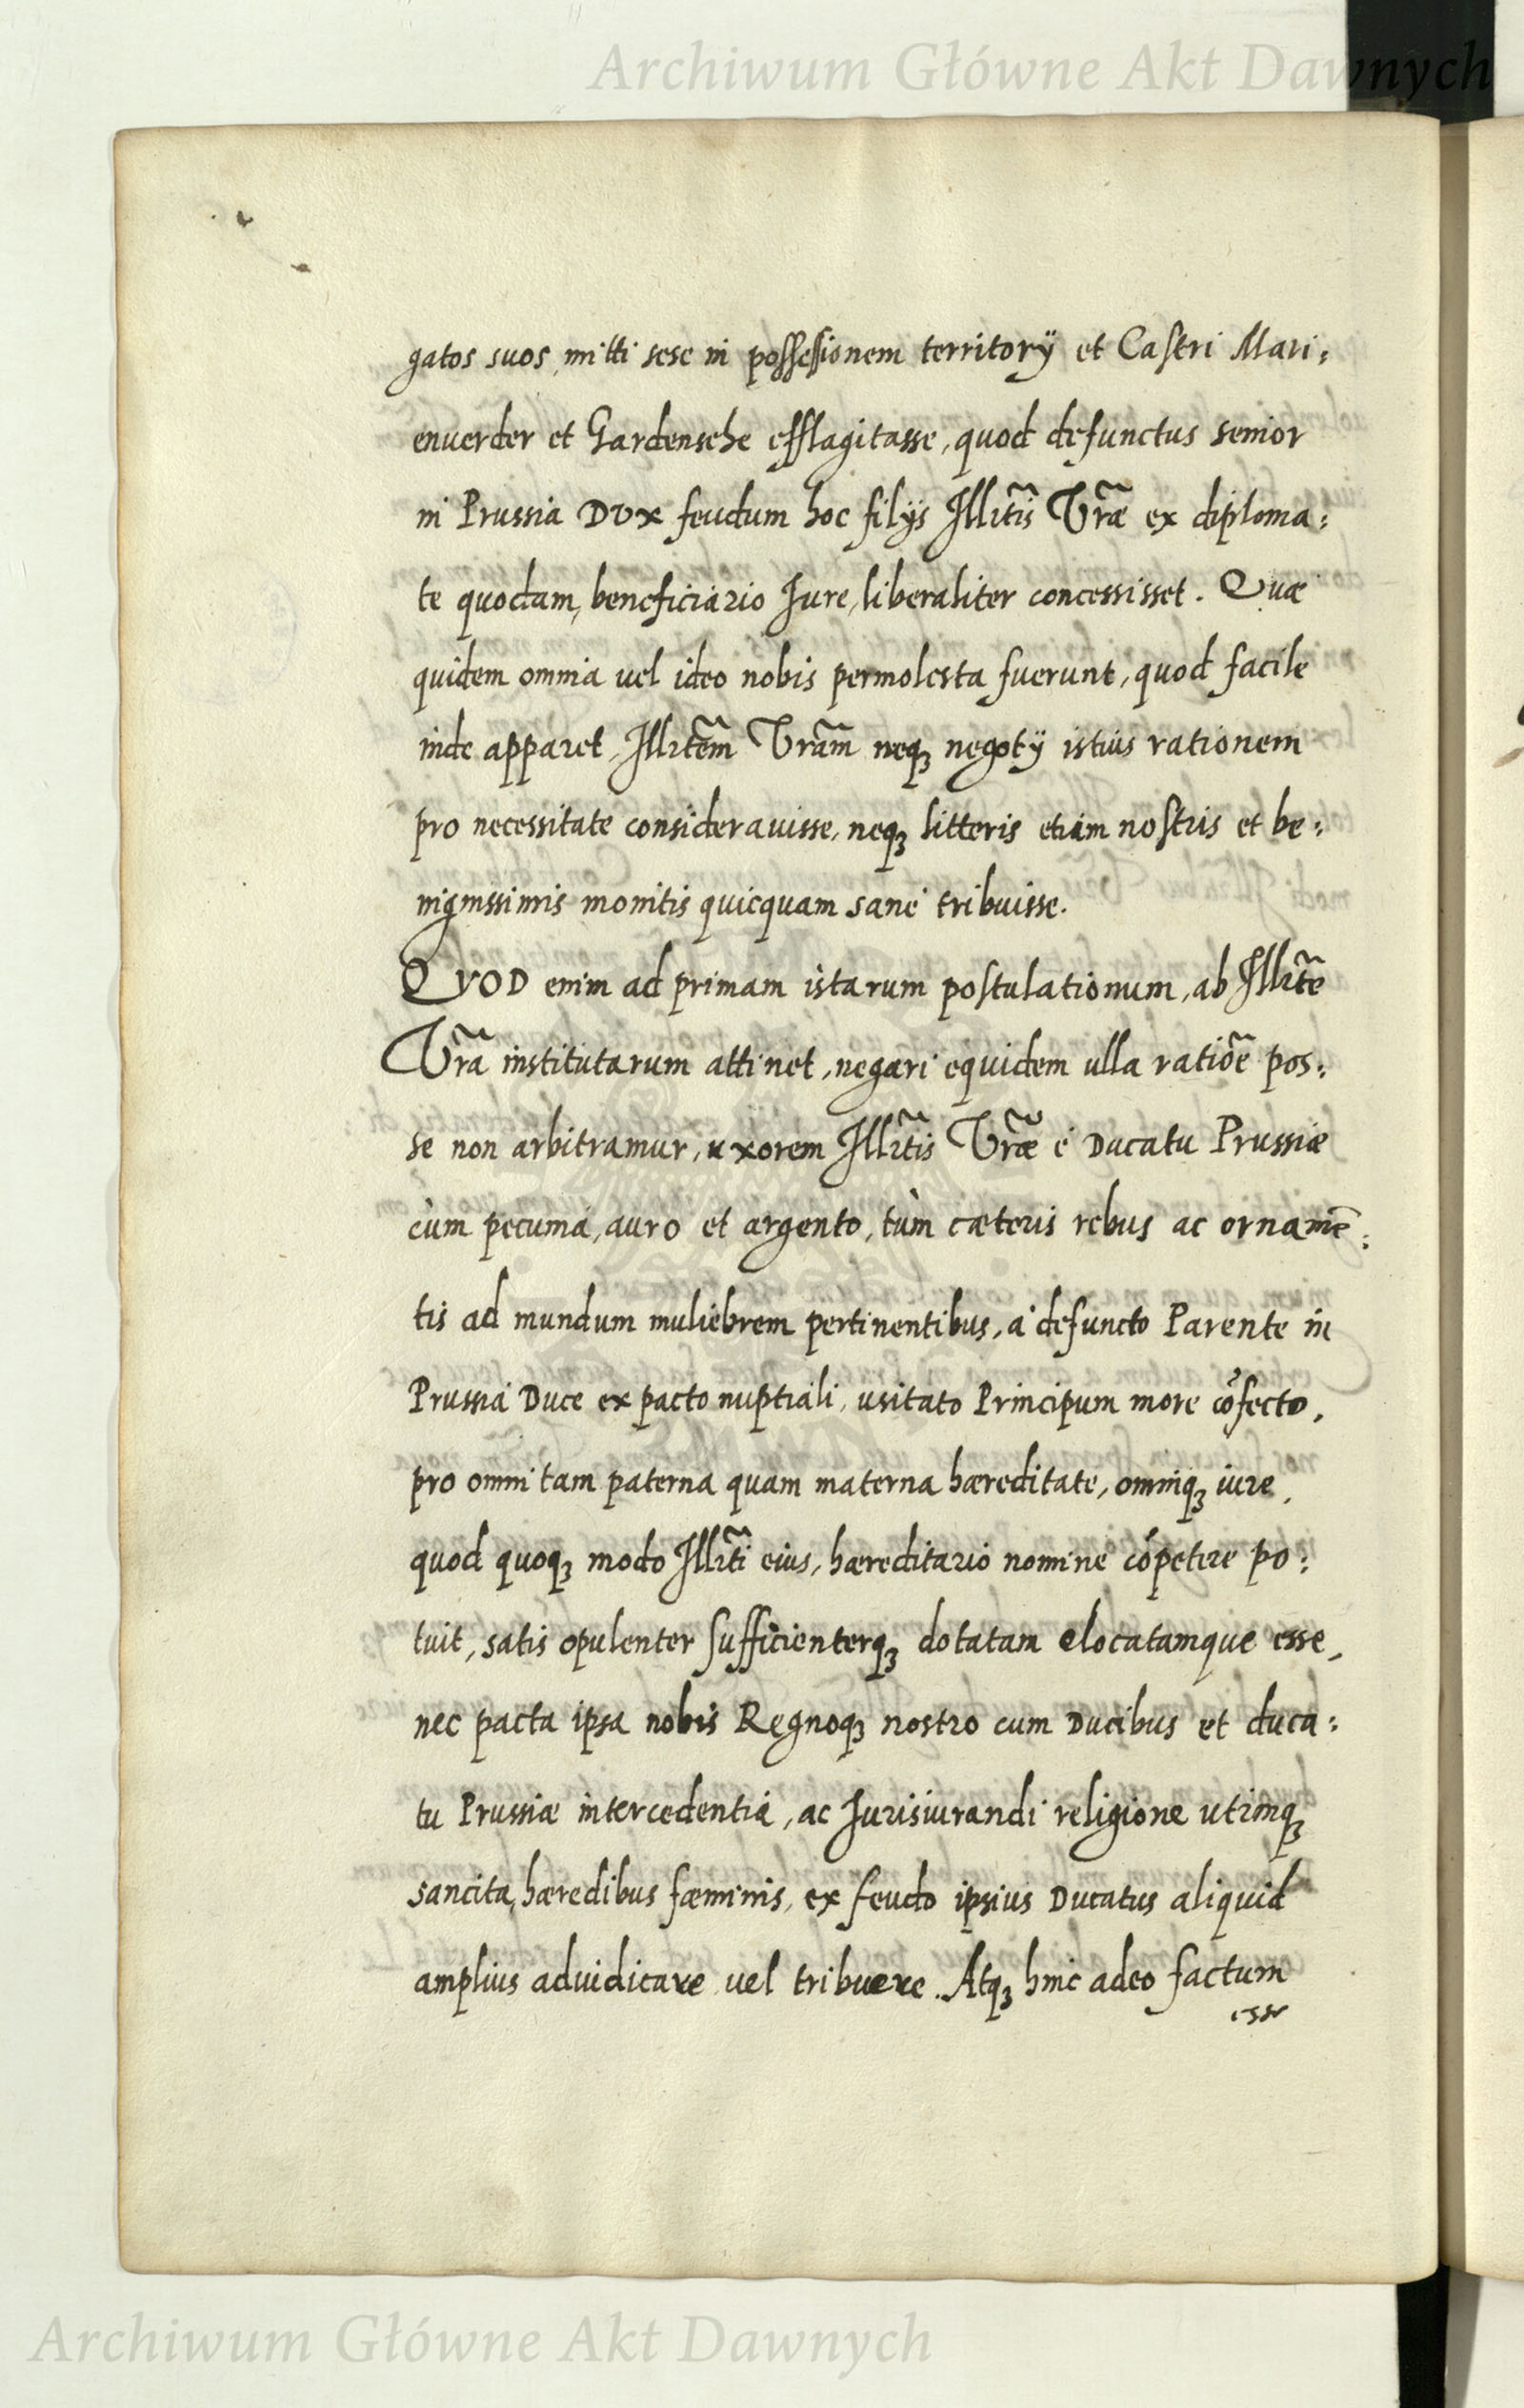 Archiwum Główne Akt Dawnych
gatos suos, mitti sese in possessionem territorÿ et Castri Mari:
enuerder et Gardensehe efflagitasse, quod defunctus senior
in Prussia Dvx feudum hoc filÿs Illrtis̃ Vrãe ex diploma:
te quodam, beneficiario Iure, liberaliter concessisset. Quæ
quidem omnia uel ideo nobis permolesta fuerunt, quod facile
inde apparet, Illrtem̃ Vrãm neqꝫ negotÿ istius rationem
pro necessitate considerauisse, neqꝫ litteris etiam nostris et be:
nignissimis monitis quicquam sanè tribuisse.
QVOD enim ad primam istarum postulationum, ab Illrtẽ
Vrã institutarum attinet, negari equidem ulla ratiõe pos:
se non arbitramur, uxorem Illrtis̃ Vrãe è Ducatu Prussiæ
cùm pecunia, auro et argento, tùm cæteris rebus ac ornamẽ:
tis ad mundum muliebrem pertinentibus, à defuncto Parente in
Prussia Duce ex pacto nuptiali, usitato Principum more cõfecto,
pro omni tam paterna quam materna hæreditate, omniqꝫ iure,
quod quoqꝫ modo Illrtĩ eius, hæreditario nomine cõpetere po:
tuit, satis opulenter sufficienterqꝫ dotatam elocatamque esse,
nec pacta ipsa nobis Regnoqꝫ nostro cum Ducibus et duca:
tu Prussiæ intercedentia, ac Iurisiurandi religione utrinqꝫ
sancita, hæredibus fæminis, ex feudo ipsius Ducatus aliquid
amplius adiudicare uel tribuere. Atqꝫ hinc adeo factum
esse
Archiwum Główne Akt Dawnych